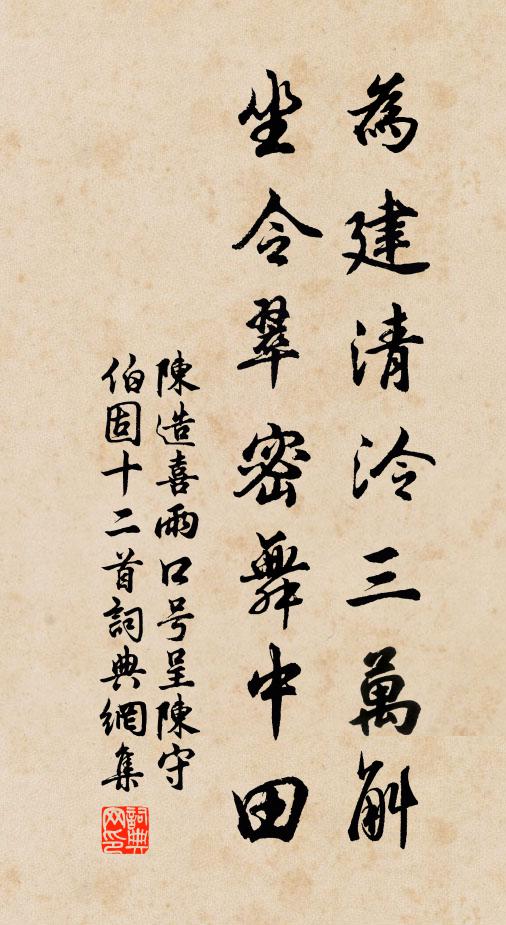 為建清泠三萬斛
坐令翠密舞中田
陳造喜雨口号呈陳守
伯固十二首詞典網集
詞典网印